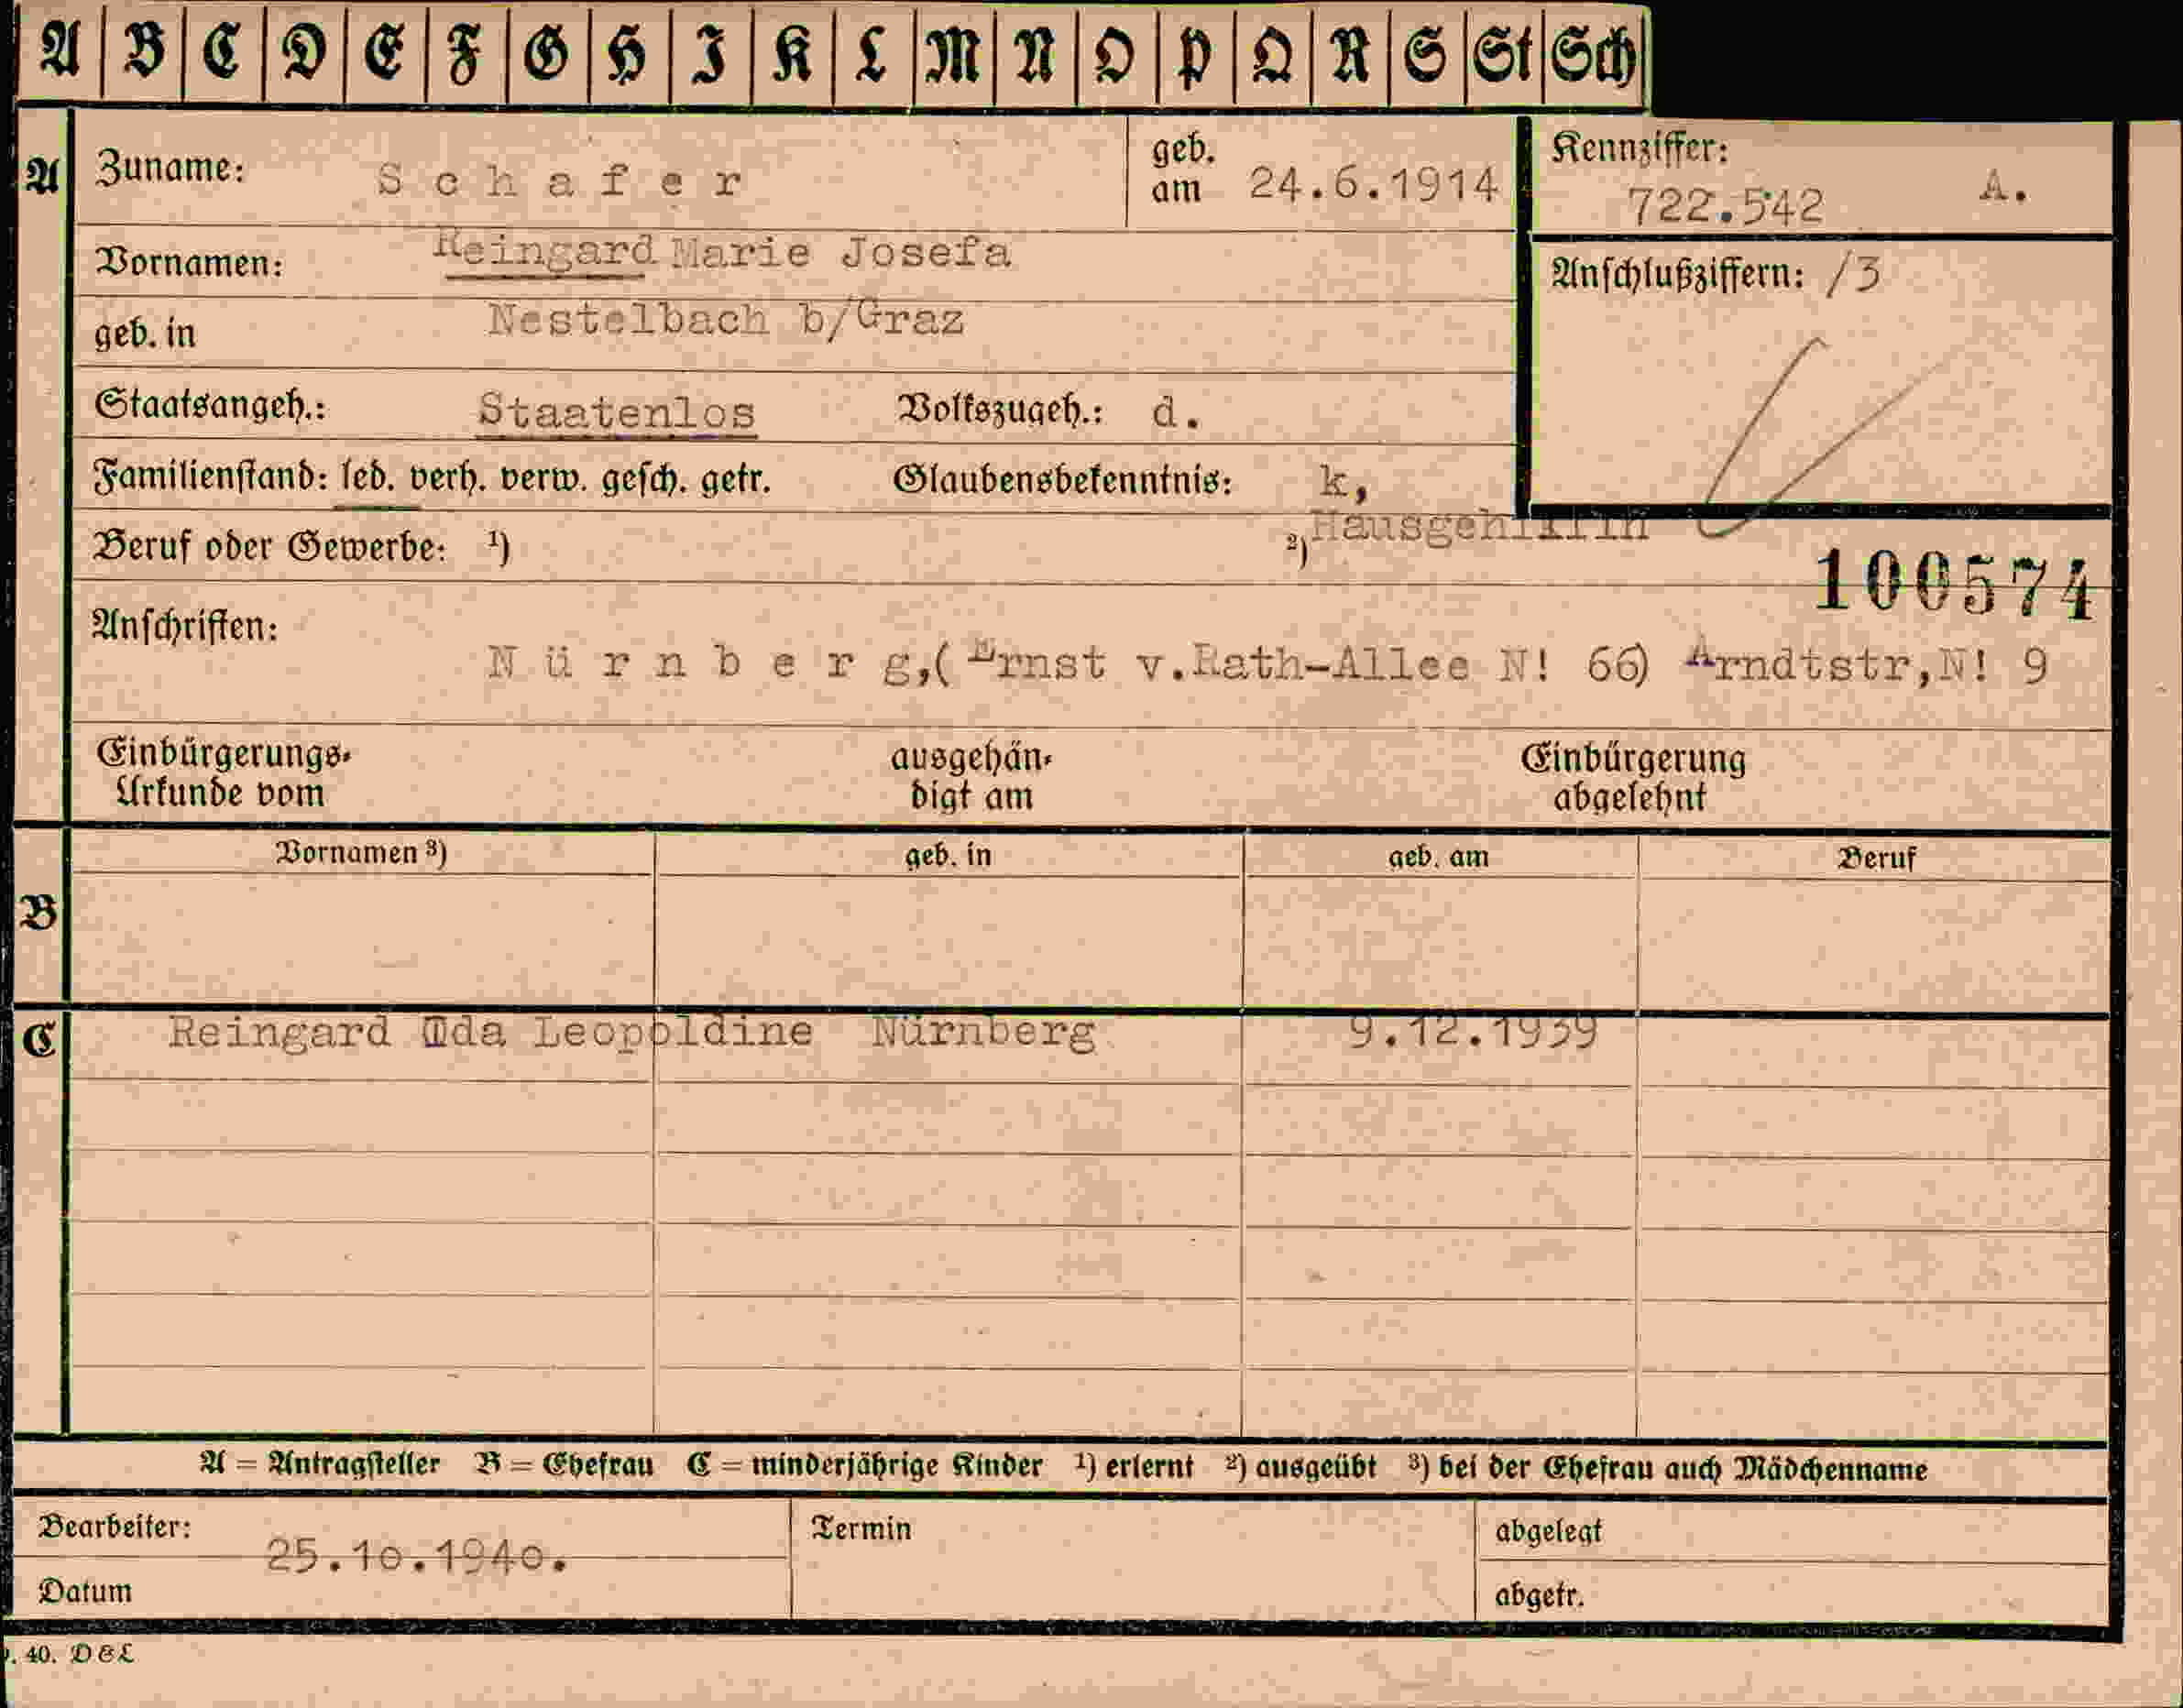 A B C D E F G H I K L M N O P Q R S St Sch
A
Zuname: Schafer geb. am 24.6.1914
Kennziffer: 722.542 A.
Vornamen: Reingard Marie Josefa
Anschlußziffern: /3
geb. in Nestelbach b/Graz
Staatsangeh.: Staatenlos Volkszugeh.: d.
Familienstand: led. verh. verw. gesch. getr. Glaubensbekenntnis: k,
Beruf oder Gewerbe: ¹) ²) Hausgehilfin
100574
Anschriften:
Nürnberg,( Ernst v.Rath-Allee N! 66) Arndtstr,N! 9
Einbürgerungs- ausgehän- Einbürgerung
Urkunde vom digt am abgelehnt
Vornamen ³) geb. in geb. am Beruf
B
C Reingard Ida Leopoldine Nürnberg 9.12.1939
A = Antragsteller B = Ehefrau C = minderjährige Kinder ¹) erlernt ²) ausgeübt ³) bei der Ehefrau auch Mädchenname
Bearbeiter: Termin abgelegt
25.10.1940.
Datum abgetr.
. 40. D & L